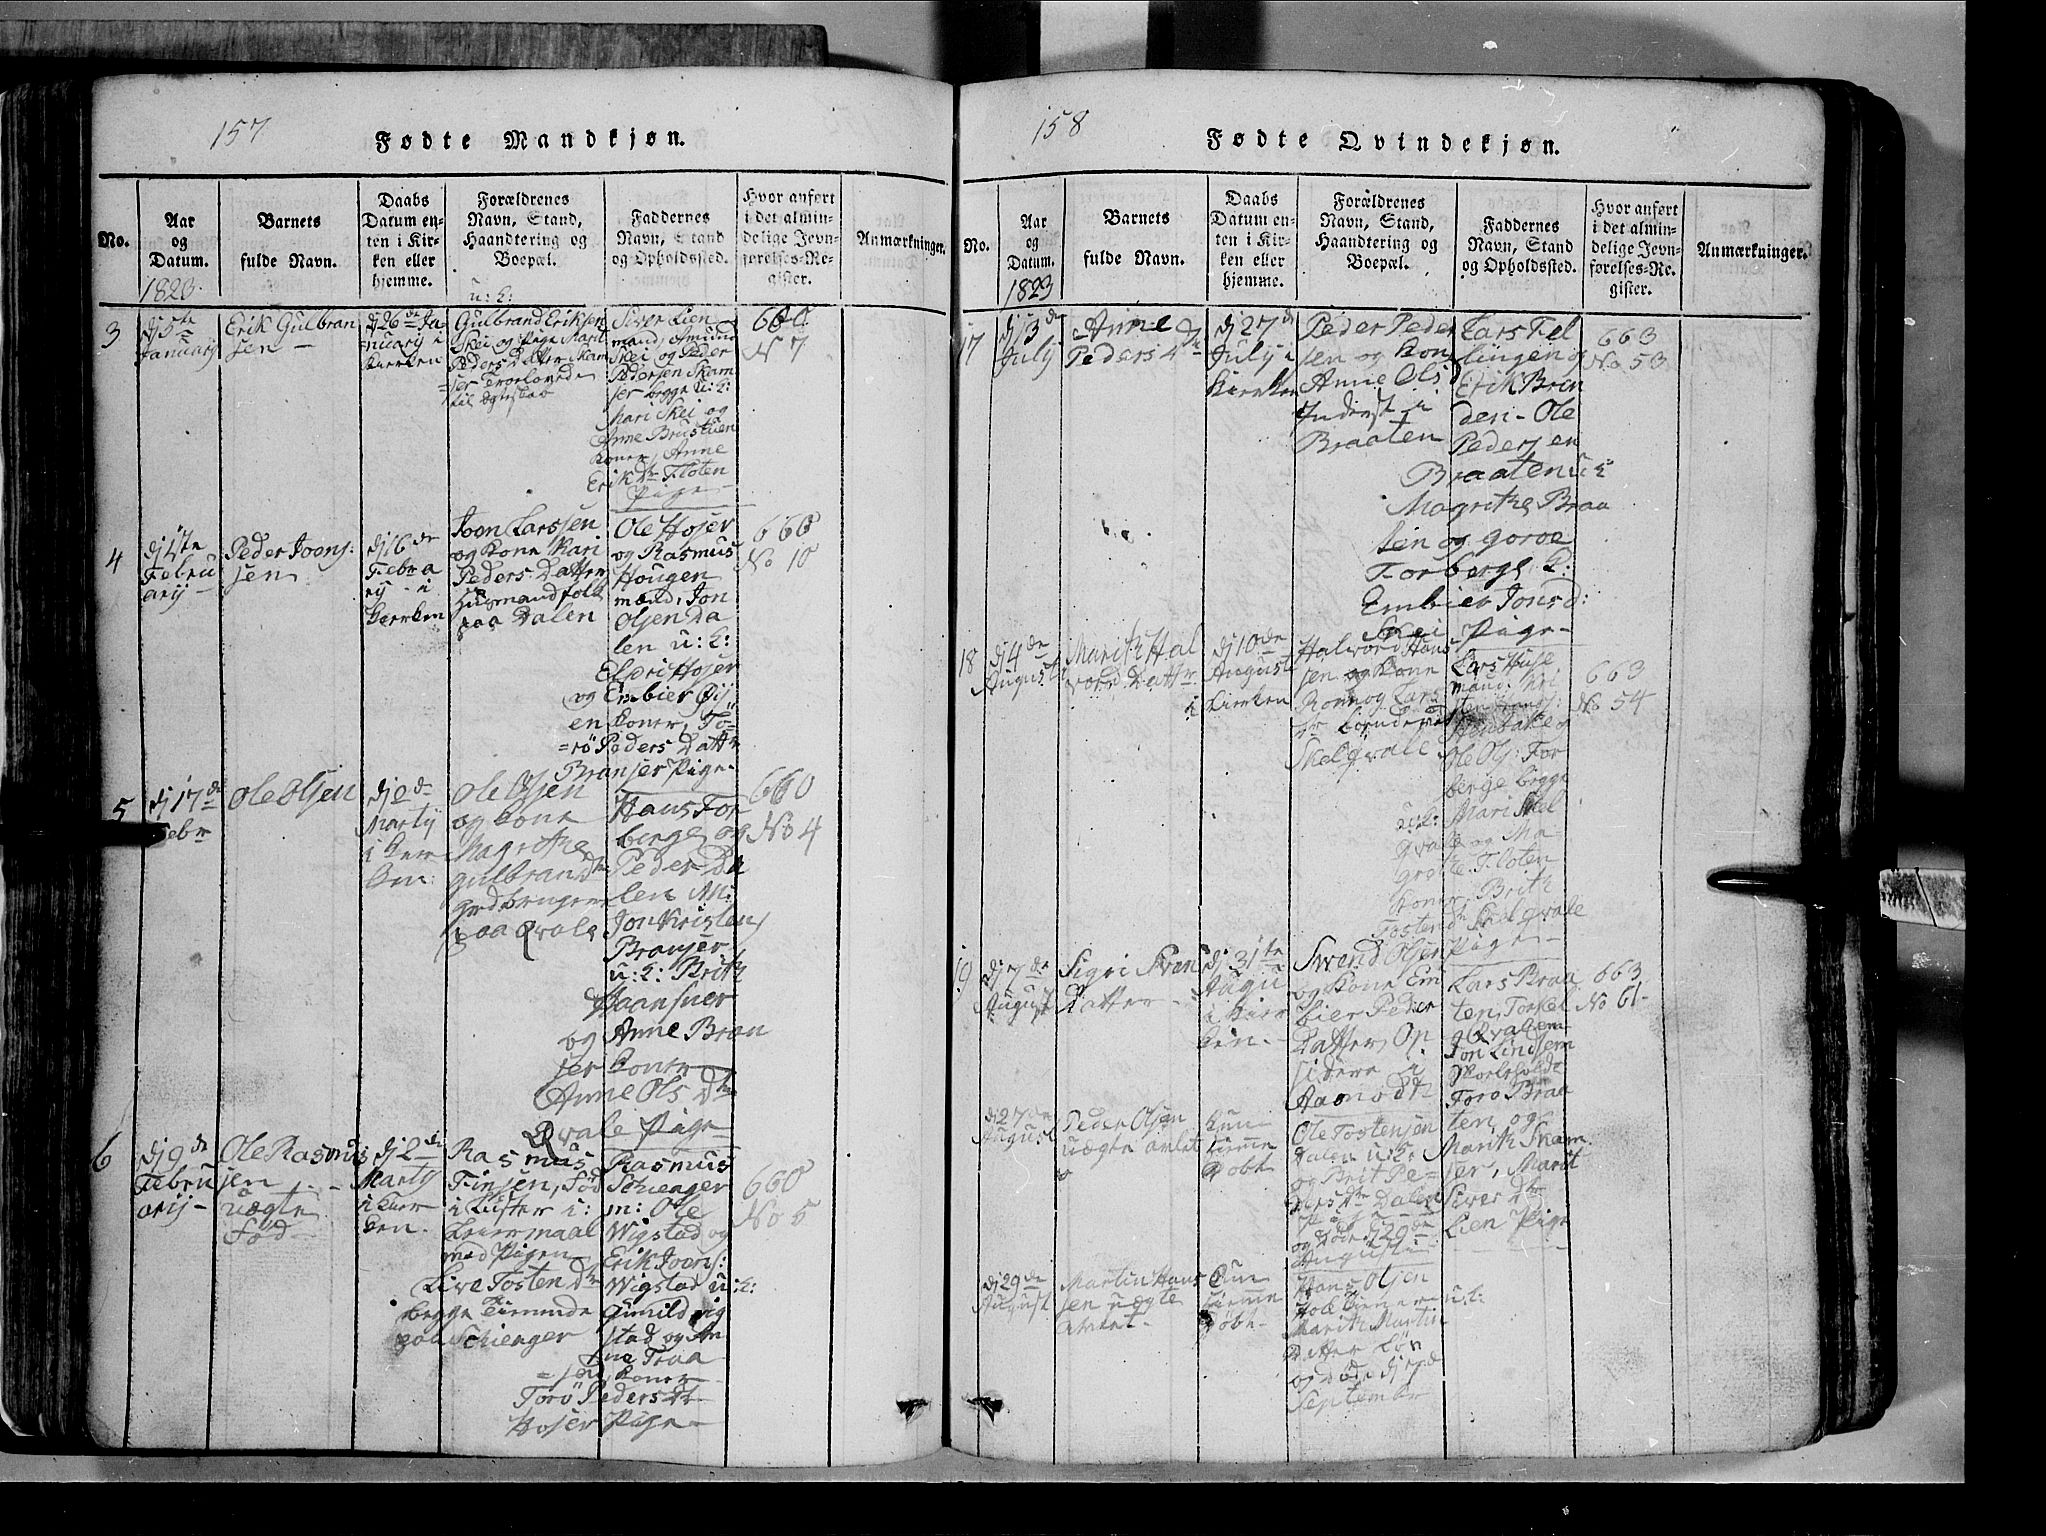 157
Fødte Mandkjøn.
No.
Aar
og
Datum.
1823.
Barnets
fulde Navn.
Daabs
Datum en-
ten i Kir-
ken eller
hjemme.
Forældrenes
Navn, Stand,
Haandtering og
Boepæl.
u: k:
Faddernes
Navn, Stand
og Opholdssted.
Hvor anført
i det almin-
delige Jevn-
førelses-Re-
gister.
Anmærkninger.
3
dj 5te
January
Erik Gulbran
sen
dj 26de Ja
nuary i
kierken
Gulbrand Eriksen
Skei og Pige Marit
Peders Datter Skam
ser Trorlovede
til Ægteskab
Siver Lien
mand, Amund
Skei og Peder
Pedersen Skam
ser begge u: k:
Mari Skei og
Anne Brustuen
koner, Anne
Erik Dtr Floten
Pige
660
No 7
4
dj 4te
Febru
arij
Peder Joons:
sen
dj 16de
Februa
rij i
kierken
Joon Larssen
og kone Kari
Peders Datter
Huusmandfolk
paa Dalen
Ole Hoser
og Rasmus
Hougen
mænd, Jon
Olsen Da
len u: k:
Eldri Hoser
og Embier Øij
en koner, To
rø Peders Dattr
Branser Pige
660
No 10
5
dj 17de
Febr
Ole Olsen
dj 2de
Martij
i kier
ken
Ole Olsen
og kone
Magrithe
Gulbrand Dtr
grdbruger
paa Qvale
Hans For
berge og
Peder Da
len M:
Jon Kristen
Branser
u: k: Brith
Haansuer
og Anne Bran
ser koner
Anne Ols Dtr
Qvale Pige
660
No 4
6
dj 9de
Febru
arij
Ole Rasmus
sen
uægte
Fød
dj 2de
Martij
i kier
ken
Rasmus
Finsen, Fød
i Luster i
Leiermaal
med Pigen
Live Tosten Dtr
begge Tienende
paa Schienger
Rasmus
Schienger
m: Ole
Wigstad og
Erik Joons:
Wigstad u: k:
Gunild Vig
stad og An
ne Traa
sen koner
Torø Peders Dtr
Hoser Pige
660
No 5
158
Fødte Qvindekjøn.
No.
Aar
og
Datum.
1823
Barnets
fulde Navn.
Daabs
Datum en-
ten i Kir-
ken eller
hjemme.
Forældrenes
Navn, Stand,
Haandtering og
Boepæl.
Faddernes
Navn, Stand
og Opholdssted.
Hvor anført
i det almin-
delige Jevn-
førelses-Re-
gister.
Anmærkninger.
17
dj 13de
July
Anne
Peders Dtr
dj 27de
July i
kierken
Peder Peder
sen og kone
Anne Ols D
Inderst i
Braaten
Lars Fiel
lingen og
Erik Bren
den - Ole
Pedersen
Braaten u: k:
Magrithe Braa
ten og Goroe
Forberge k:
Embier Jons d:
Skei Pige
663
No 53
18
dj 4de
Augusti
Marith Hal
vord Dattr
dj 10de
Augusti
i kierken
Halvord Hans
sen og kone
Ronnog Lars
Dtr
Skelqvale
Lars Huse
mand: Kri
Stenbake og
Ole Ols: For
berge begge
u: k: Mari Skel
qvale og Ma
grethe Floten
koner, Brith
Tosten d Skelqvale
Pige
663
No 54
19
dj 7de
August
Sigri Sven
Datter
dj 31te
Augu
i kier
ken
Svend Olsen
og kone Em
bier Peder
Datter, Op
sidere i
Aamodt
Lars Braa
ten, Torkel
Qvalem
Jon Lindsem
Toro Braa
ten, og
Marith Skam
ser, Marit
Siver Dtr
Lien Pige
663
No 61
dj 27de
August
Peder Olsen
uægte avlet
kun
hieme
døbt
Ole Tostensen
Dalen u: k:
og Brit Pe
ders Dtr Dalen
Pige
og døde dj 29de
Augusti
dj 29de
August
Martin Hans
sen uægte
avlet
kun
hiemme
døbt
Hans Olsen
u: k:
Marith Martin
Datter Løv
og døde dj 1te
September